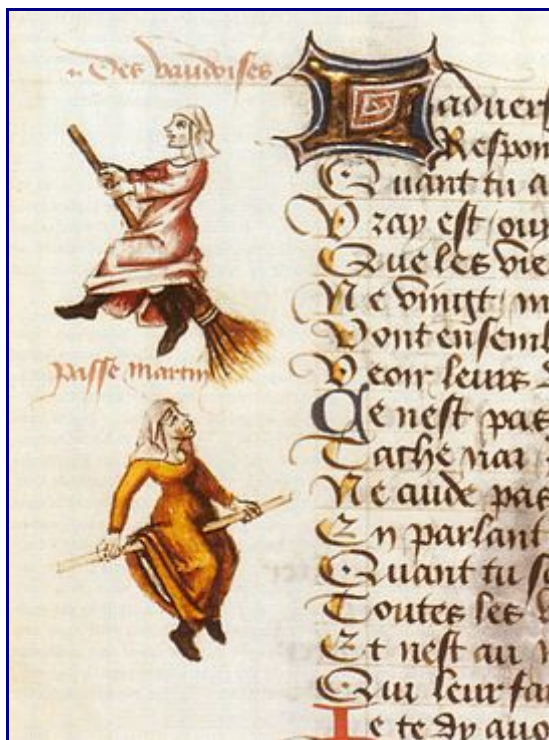 Des vaudoises
passe martin
aduers
Respon
Quant tu a
Vray est / ouy
Que les vie
Ne vingt / m
Vont ensemb
Veoir leurs
Ce nest pas
Ne cuide pas
En parlant
Quant tu s
Toutes les
Et nest au
Qui leur fa
Je te dy auo